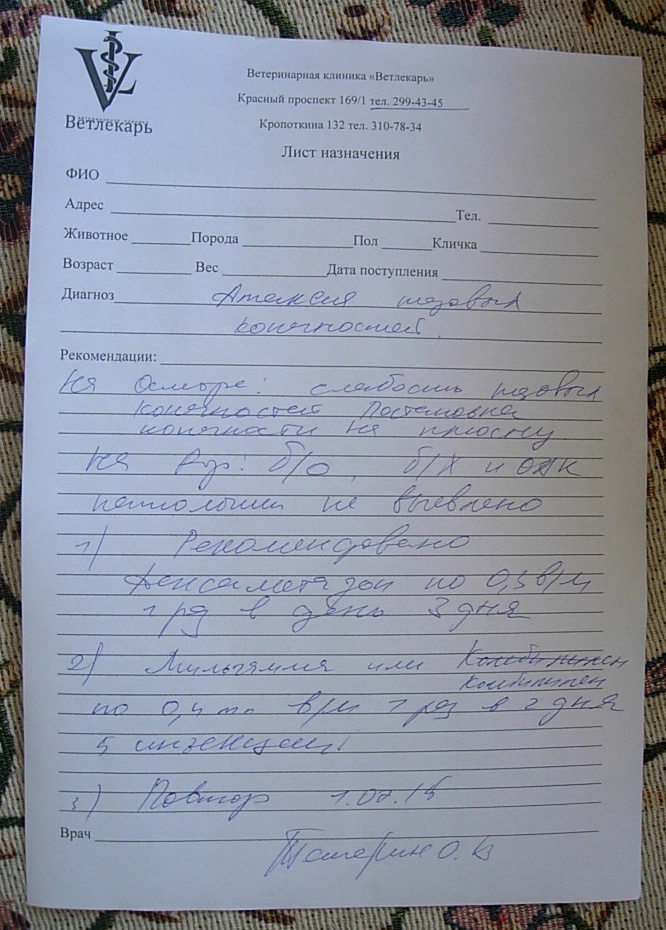 VL
Ветлекарь
Ветеринарная клиника «Ветлекарь»
Красный проспект 169/1 тел. 299-43-45
Кропоткина 132 тел. 310-78-34
Лист назначения
ФИО
Адрес Тел.
Животное Порода Пол Кличка
Возраст Вес Дата поступления
Диагноз Атаксия тазовых
конечностей.
Рекомендации:
На Осмотре: слабость тазовых
конечностей Постановка
конечности на плюсну
На б/о, б/х и ОАК
патологии не выявлено
1) Рекомендовано
Дексаметазон по 0,3 в/м
1 рд в день 3 дня
2) Мильгамма или Комбилипен
Комбилипен
по 0,4 мл в/м 1 раз в 2 дня
5 инъекций
3) Повтор
Врач